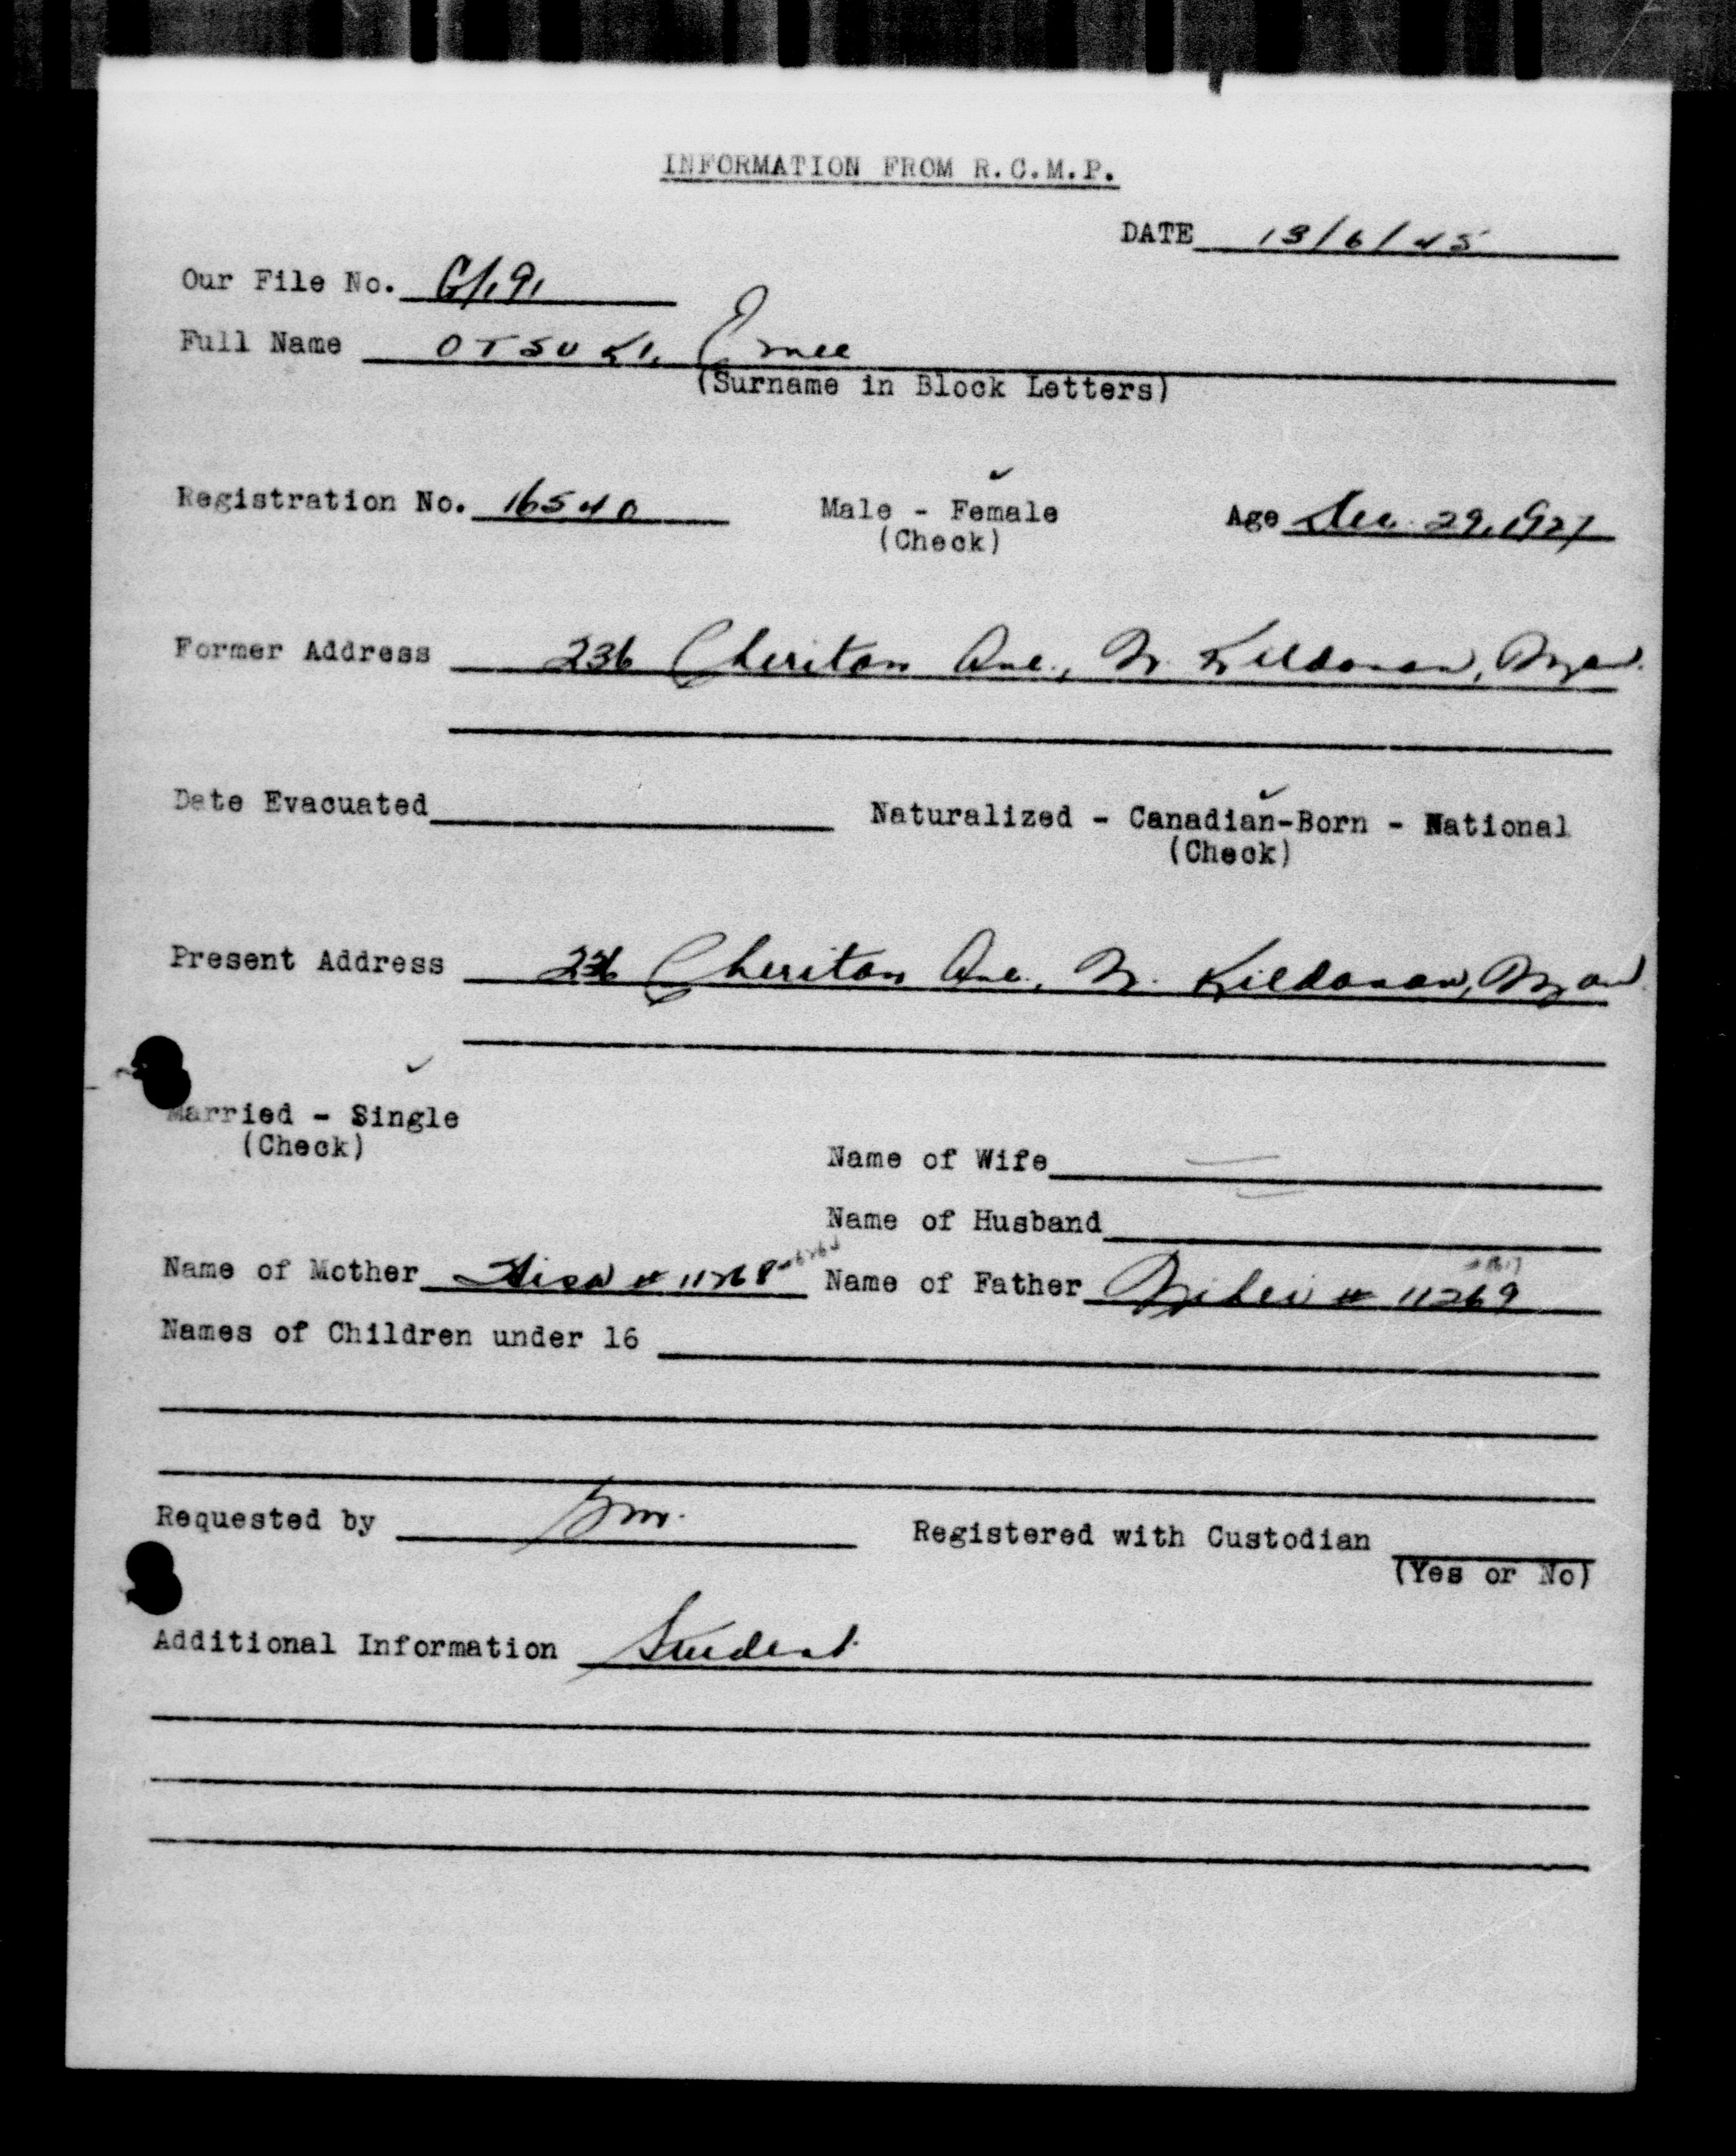 INFORMATION FROM R.C.M.P.
DATE 13/6/45
Our File No.
Full Name OTSUKI,
(Surname in Block Letters)
✓
Registration No. 16540 Male - Female Age Dec. 29, 1927
(Check)
Former Address 236 Cheriton Ave., N. Kildonan, Man.
✓
Date Evacuated Naturalized - Canadian-Born - National
(Check)
Present Address 236 Cheriton Ave., N. Kildonan, Man.
✓
Married - Single
(Check)
Name of Wife
Name of Husband
Name of Mother # 11268 Name of Father # 11269
Names of Children under 16
Requested by Registered with Custodian
(Yes or No)
Additional Information Student